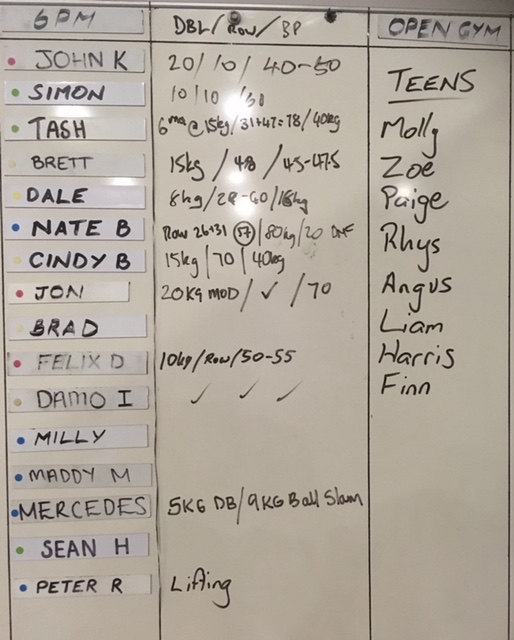 6PM DBL/ROW/BP OPEN GYM
JOHN K 20/10/40-50
TEENS
SIMON 10/10
TASH @15kg/31+47=78/40kg Molly
BRETT 15kg/48/45-47.5 Zoe
DALE 8kg/28-60/ Paige
NATE B Row 26+31 57/80kg/20 DNF Rhys
CINDY B 15kg/70/40kg
JON 20KG MOD/✓/70 Angus
BRAD Liam
FELIX D 10kg/Row/50-55 Harris
DAMO I ✓ ✓ ✓ Finn
MILLY
MADDY M
MERCEDES 5KG DB/9KG Ball Slam
SEAN H
PETER R Lifting